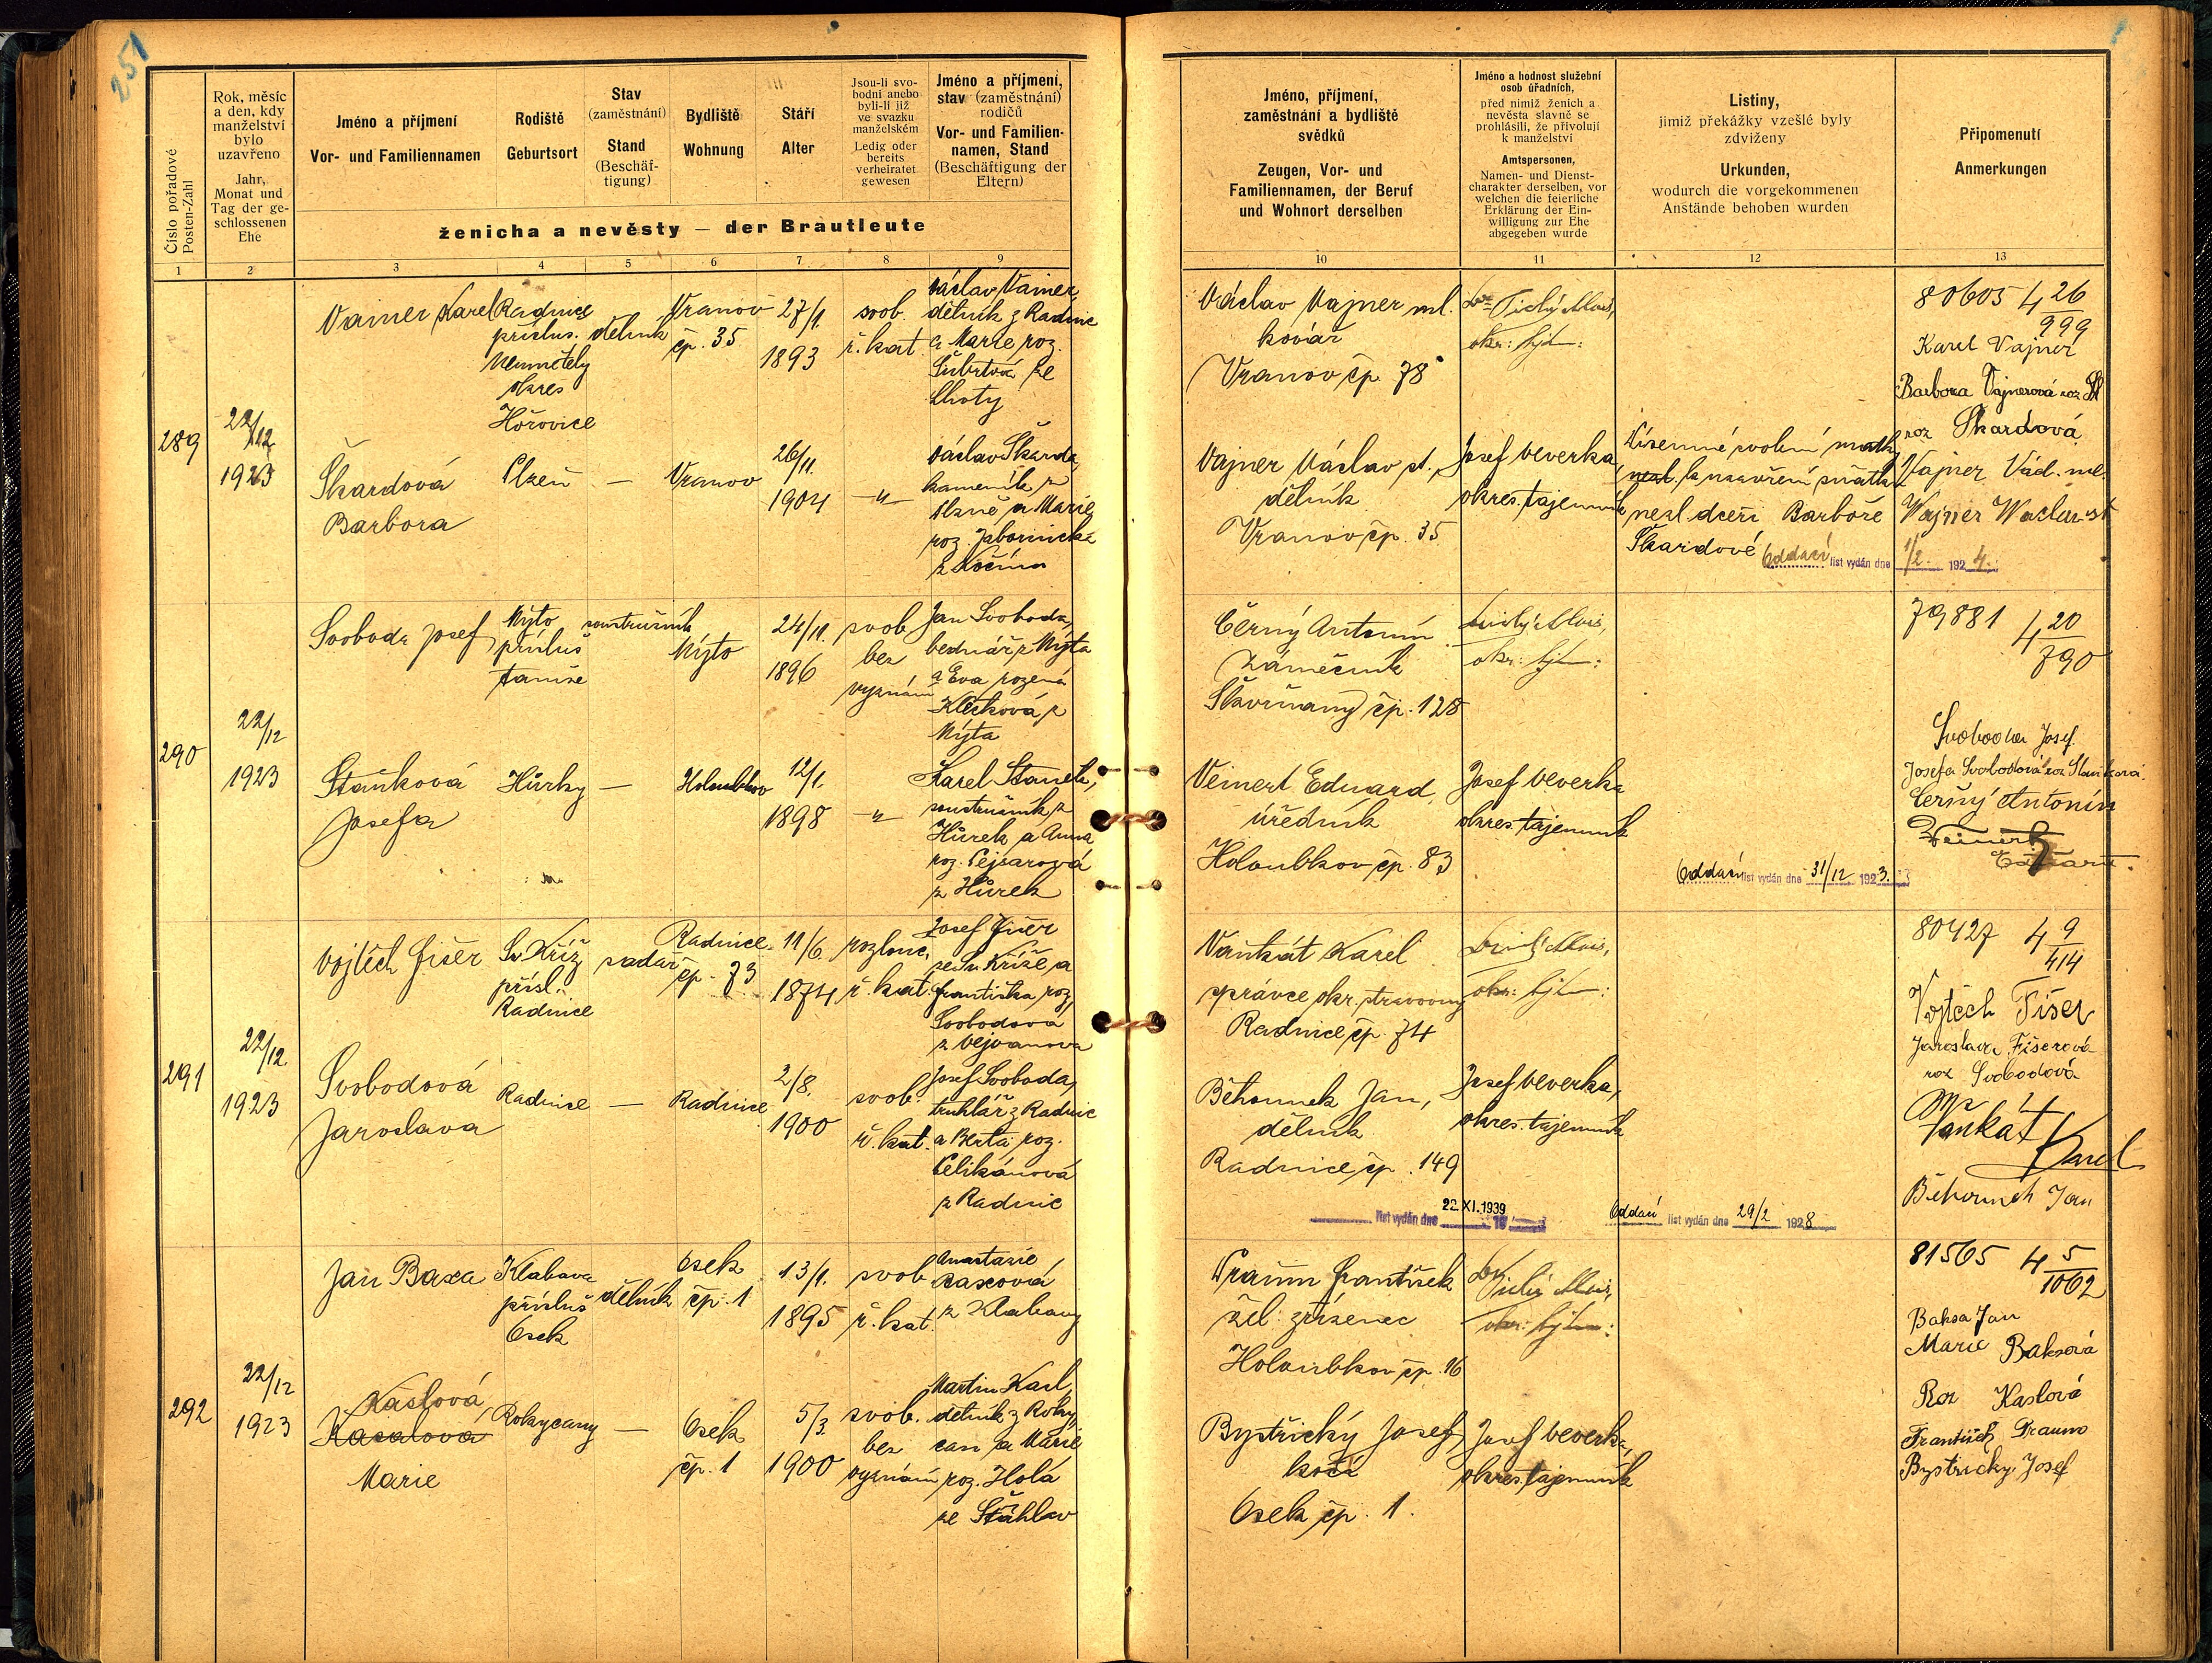 251
Číslo pořadové
Posten-Zahl
Rok, měsíc
a den, kdy
manželství
bylo
uzavřeno
Jahr,
Monat und
Tag der ge-
schlossenen
Ehe
Jméno a příjmení
Vor- und Familiennamen
Rodiště
Geburtsort
Stav
(zaměstnání)
Stand
(Beschäf-
tigung)
Bydliště
Wohnung
Stáří
Alter
Jsou-li svo-
bodni anebo
byli-li již
ve svazku
manželském
Ledig oder
bereits
verheiratet
gewesen
Jméno a příjmení,
stav (zaměstnání)
rodičů
Vor- und Familien-
namen, Stand
(Beschäftigung der
Eltern)
ženicha a nevěsty — der Brautleute
Jméno, příjmení,
zaměstnání a bydliště
svědků
Zeugen, Vor- und
Familiennamen, der Beruf
und Wohnort derselben
Jméno a hodnost služební
osob úřadních,
před nimiž ženich a
nevěsta slavně se
prohlásili, že přivolují
k manželství
Amtspersonen,
Namen- und Dienst-
charakter derselben, vor
welchen die feierliche
Erklärung der Ein-
willigung zur Ehe
abgegeben wurde
Listiny,
jimiž překážky vzešlé byly
zdviženy
Urkunden,
wodurch die vorgekommenen
Anstände behoben wurden
Připomenutí
Anmerkungen
1 2 3 4 5 6 7 8 9 10 11 12 13
289
22/12
1923
Vainer Karel
Radnice
přísluš.
Neumětely
okres
Hořovice
dělník
Vranov
čp. 35
27/1.
1893
svob.
ř. kat.
Václav Vainer,
dělník z Radnic
a Marie roz.
Šubrtová ze
Lhoty
Škardová
Barbora
Plzeň
—
Vranov
26/11.
1904
-"-
Václav Škarda,
kameník z
Plzně a Marie
roz.
z Kočína
Václav Vajner ml.
kovář
Vranov čp. 78
Tichý Alois,
Vajner Václav st.,
dělník
Vranov čp. 35
Josef Veverka,
okres. tajemník
Písemné svolení matky
nezl. k uzavření sňatku
nezl. dceři Barboře
Škardové
Oddací list vydán dne 1/2. 1924.
80605 4 26/999
Karel Vajner
Barbora Vajnerová roz
roz Škardová
Vajner Vác. ml.
Wajner Waclav st
290
22/12
1923
Svoboda Josef
Mýto
přísluš
soustružník
Mýto
24/11.
1896
svob
bez
vyznání
Jan Svoboda,
bednář z Mýta
a Eva rozená
Klečková z
Mýta
Staňková
Josefa
Hůrky
—
Holoubkov
12/1.
1898
-"-
Karel Staněk,
soustružník z
Hůrek a Anna
roz. Pejsarová
z Hůrek
Černý Antonín
zámečník
Skvrňany čp. 128
Tichý Alois,
Veinert Eduard,
úředník
Holoubkov čp. 83
Josef Veverka
okres. tajemník
Oddací list vydán dne 31/12 1923.
79881 4 20/790
Svoboda Josef.
Josefa Svobodová roz Staňková.
Černý Antonín
Weinert
Eduard
291
22/12
1923
Vojtěch Fišer
Sv. Kříž
přísl.
Radnice
sadař
Radnice
čp. 73
11/6.
1874
rozlouč.
ř. kat.
Josef Fišer
ze Sv. Kříže a
Františka roz.
Svobodová
z Vejvanova
Svobodová
Jaroslava
Radnice
—
Radnice
2/8.
1900
svob.
ř. kat.
Josef Svoboda,
truhlář z Radnic
a Berta roz.
Pelikánová
z Radnic
Vaňkát Karel
správce okr. stravovny
Radnice čp. 74
Tichý Alois,
Běhounek Jan,
dělník
Radnice čp. 149
Josef Veverka,
okres. tajemník
list vydán dne 22.XI.1939
Oddací list vydán dne 29/2 1928
80427 4 9/414
Vojtěch Fišer
Jaroslava Fišerová
roz Svobodová
Vaňkát
Karel
Běhounek Jan
292
22/12
1923
Jan Baxa
Klabava
přísluš
Osek
dělník
Osek
čp. 1
13/1.
1895
svob
ř. kat.
Anastazie
Baxová
z Klabavy
Kaslová
Marie
Rokycany
—
Osek
čp. 1
5/3.
1900
svob.
bez
vyznání
Martin Kasl,
dělník z Roky-
can a Marie
roz. Holá
ze Šťáhlav
Praum František
žel. zřízenec
Holoubkov čp. 16
Tichý Alois,
Bystřický Josef,
kočí
Osek čp. 1.
Josef Veverka,
okres. tajemník
81565 4 5/1062
Baksa Jan
Marie Baksová
Roz Kaslová
František Praum
Bystricky Josef